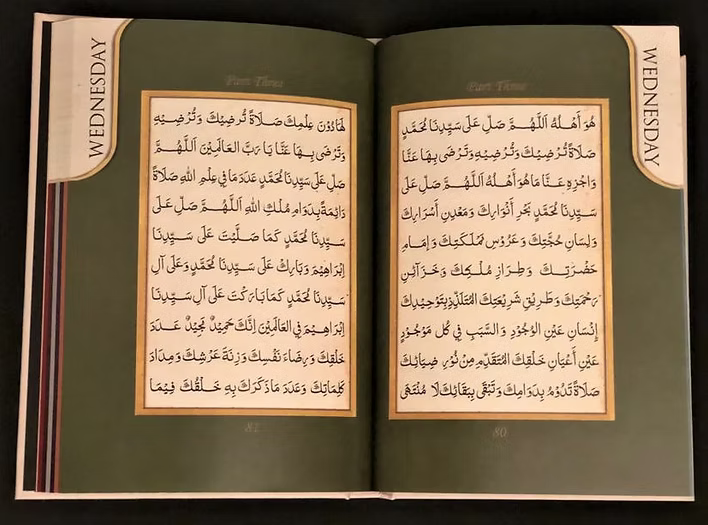 WEDNESDAY
Part Three
هُوَ أَهْلُهُ اَللَّهُمَّ صَلِّ عَلَى سَيِّدِنَا مُحَمَّدٍ
صَلَاةً تُرْضِيكَ وَتُرْضِيهِ وَتَرْضَى بِهَا عَنَّا
وَاجْزِهِ عَنَّا مَا هُوَ أَهْلُهُ اَللَّهُمَّ صَلِّ عَلَى
سَيِّدِنَا مُحَمَّدٍ بَحْرِ أَنْوَارِكَ وَمَعْدِنِ أَسْرَارِكَ
وَلِسَانِ حُجَّتِكَ وَعَرُوسِ مَمْلَكَتِكَ وَإِمَامِ
حَضْرَتِكَ وَطِرَازِ مُلْكِكَ وَخَزَائِنِ
رَحْمَتِكَ وَطَرِيقِ شَرِيعَتِكَ الْمُتَلَذِّذِ بِتَوْحِيدِكَ
إِنْسَانِ عَيْنِ الْوُجُودِ وَالسَّبَبِ فِي كُلِّ مَوْجُودٍ
عَيْنِ أَعْيَانِ خَلْقِكَ الْمُتَقَدِّمِ مِنْ نُورِ ضِيَائِكَ
صَلَاةً تَدُومُ بِدَوَامِكَ وَتَبْقَى بِبَقَائِكَ لَا مُنْتَهَى
80
WEDNESDAY
Part Three
لَهَا دُونَ عِلْمِكَ صَلَاةً تُرْضِيكَ وَتُرْضِيهِ
وَتَرْضَى بِهَا عَنَّا يَا رَبَّ الْعَالَمِينَ اَللَّهُمَّ
صَلِّ عَلَى سَيِّدِنَا مُحَمَّدٍ عَدَدَ مَا فِي عِلْمِ اللهِ صَلَاةً
دَائِمَةً بِدَوَامِ مُلْكِ اللهِ اَللَّهُمَّ صَلِّ عَلَى
سَيِّدِنَا مُحَمَّدٍ كَمَا صَلَّيْتَ عَلَى سَيِّدِنَا
إِبْرَاهِيمَ وَبَارِكْ عَلَى سَيِّدِنَا مُحَمَّدٍ وَعَلَى آلِ
سَيِّدِنَا مُحَمَّدٍ كَمَا بَارَكْتَ عَلَى آلِ سَيِّدِنَا
إِبْرَاهِيمَ فِي الْعَالَمِينَ إِنَّكَ حَمِيدٌ مَجِيدٌ عَدَدَ
خَلْقِكَ وَرِضَاءَ نَفْسِكَ وَزِنَةَ عَرْشِكَ وَمِدَادَ
كَلِمَاتِكَ وَعَدَدَ مَا ذَكَرَكَ بِهِ خَلْقُكَ فِيمَا
81